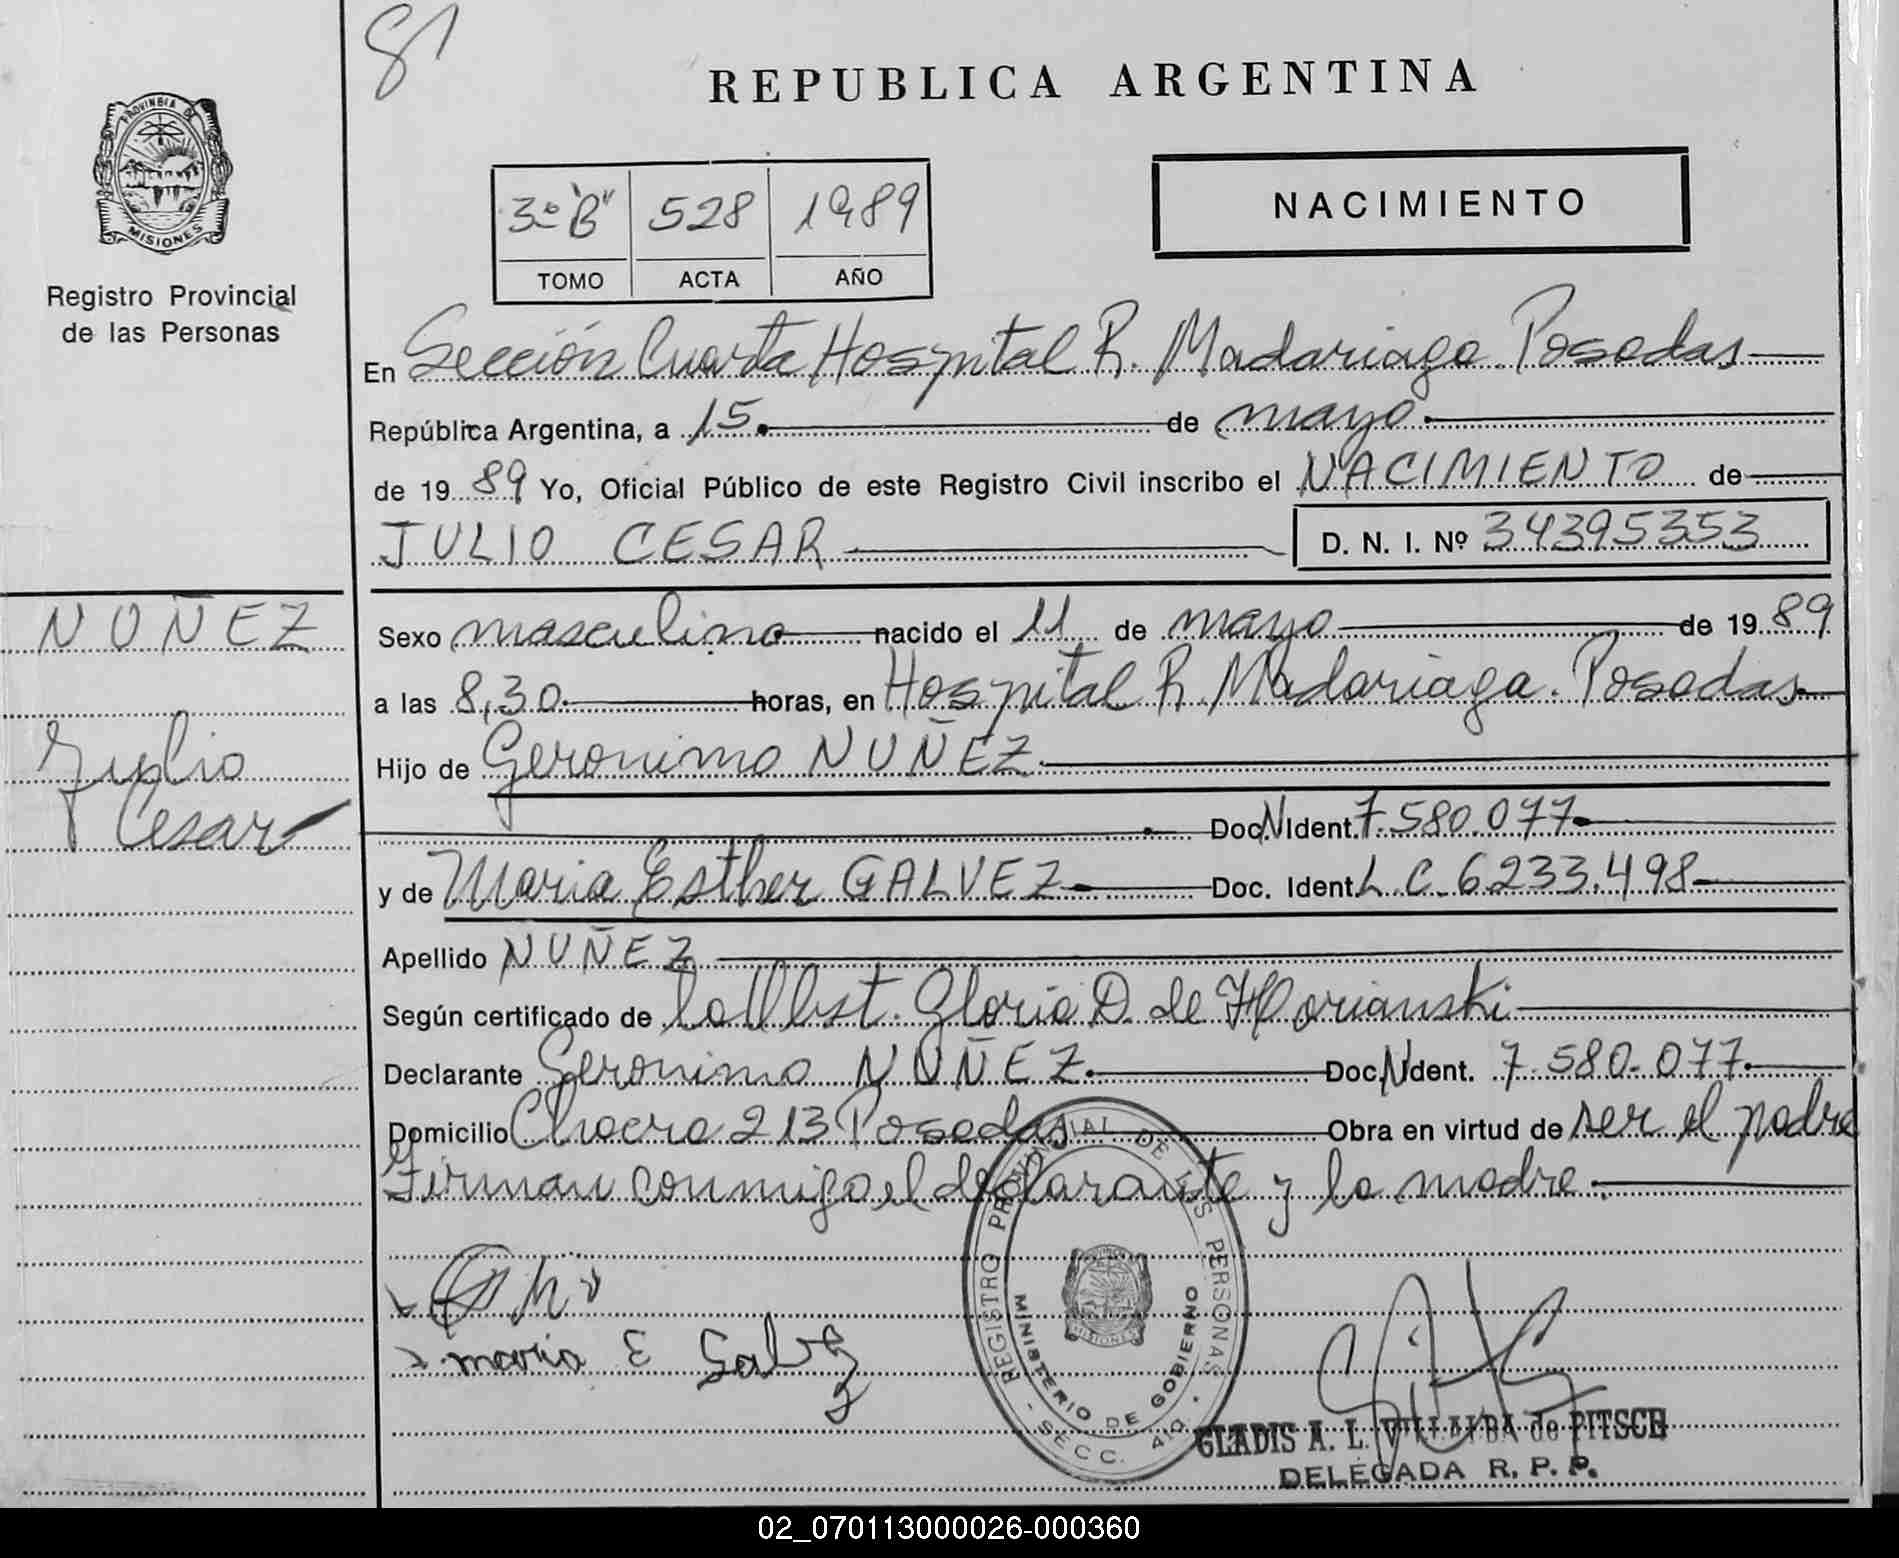 81
REPUBLICA ARGENTINA
PROVINCIA DE
MISIONES
Registro Provincial
de las Personas
3º "B" 528 1989
TOMO ACTA AÑO
NACIMIENTO
En Sección Cuarta Hospital R. Madariaga. Posadas
República Argentina, a 15 de mayo
de 1989 Yo, Oficial Público de este Registro Civil inscribo el NACIMIENTO de
JULIO CESAR D. N. I. Nº 34395353
NUÑEZ
Julio
Cesar
Sexo masculino nacido el 11 de mayo de 1989
a las 8,30 horas, en Hospital R. Madariaga. Posadas
Hijo de Geronimo NUÑEZ
Doc. Ident. 7.580.077
y de Maria Esther GALVEZ Doc. Ident. L.C. 6233.498
Apellido NUÑEZ
Según certificado de la Obst. Gloria D. de Florianski
Declarante Geronimo NUÑEZ Doc. Ident. 7.580.077
Domicilio Chacra 213 Posadas Obra en virtud de ser el padre
Firman conmigo el declarante y la madre.
maria E Galvez
REGISTRO PROVINCIAL DE LAS PERSONAS
MINISTERIO DE GOBIERNO
MISIONES
SECC. 4ta.
GLADIS A. L. VILLALBA de PITSCH
DELEGADA R. P. P.
02_070113000026-000360